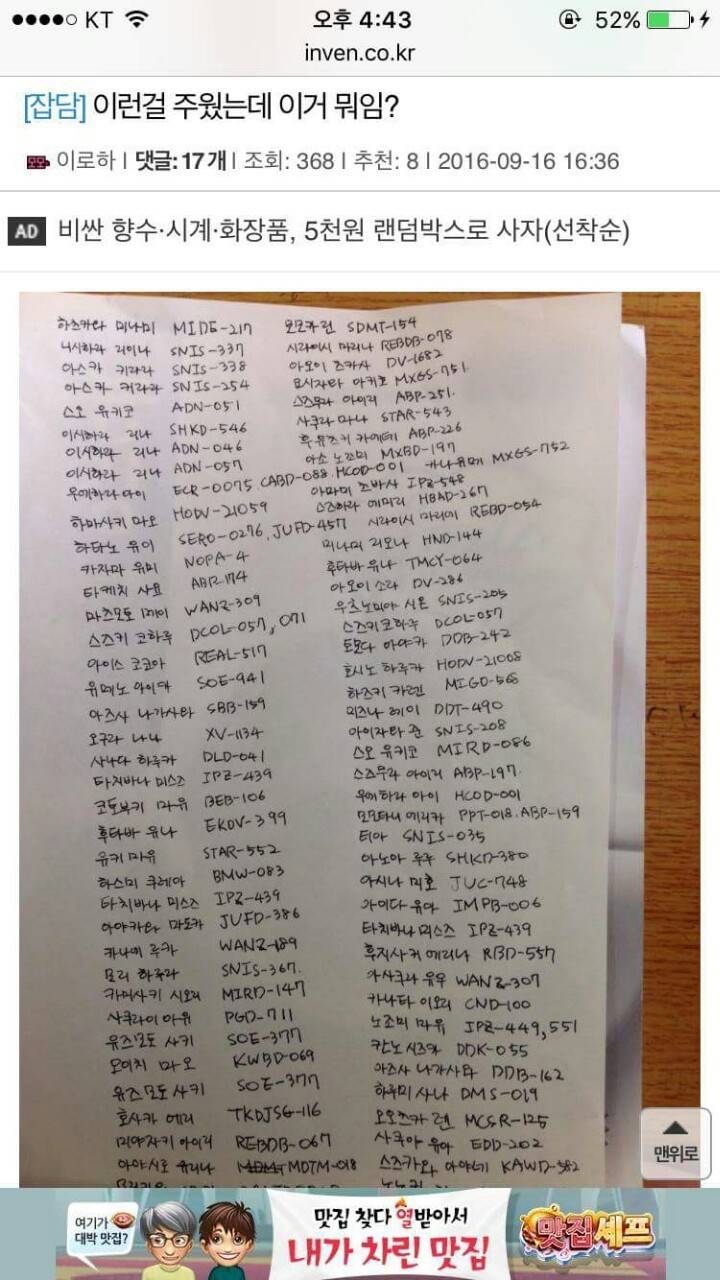 KT 오후 4:43 52%
inven.co.kr
[잡담] 이런걸 주웠는데 이거 뭐임?
이로하 | 댓글: 17개 | 조회: 368 | 추천: 8 | 2016-09-16 16:36
AD 비싼 향수·시계·화장품, 5천원 랜덤박스로 사자(선착순)
하즈카와 미나미 MIDE-217
니시하라 리이나 SNIS-337
아스카 키라라 SNIS-338
아스카 키라라 SNIS-254
스오 유키코 ADN-051
이시하라 리나 SHKD-546
이시하라 리나 ADN-046
이시하라 리나 ADN-057
우에하라 아이 ECR-0075. CABD-088. HCOD-001
하마사키 마오 HODV-21059
하타노 유이 SERO-0276, JUFD-457
카자마 유미 NOPA-4
타케치 사요 ABP-174
마츠모토 메이 WANZ-309
스즈키 코하루 DCOL-057, 071
아이스 코코아 REAL-517
유메노 아이카 SOE-941
아즈사 나가사와 SBB-159
오구라 나나 XV-1134
사나다 하루카 DLD-041
타치바나 미스즈 IPZ-439
코토부키 마유 BEB-106
후타바 유나 EKDV-399
유키 마유 STAR-552
하스미 쿠레아 BMW-083
타치바나 미스즈 IPZ-439
아야카와 마도카 JUFD-386
카나에 루카 WANZ-189
모리 하루라 SNIS-367.
카미사키 시오리 MIRD-147
사쿠라이 아유 PGD-711
유즈모토 사키 SOE-377
오이치 마오 KWBD-069
유즈모토 사키 SOE-377
호사카 에리 TKDJSG-116
미야자키 아이리 REBDB-067
아야시로 유리나 MDTM-018
모모카 린 SDMT-154
시라이시 마리나 REBDB-078
아오이 츠카사 DV-1682
요시자와 아키호 MXGS-751.
스즈무라 아이리 ABP-251.
사쿠라 마나 STAR-543
후유즈키 카에데 ABP-226
아소 노조미 MXBD-197
카나 유메 MXGS-752
아마미 츠바사 IPZ-548
스즈하라 에미리 HBAD-267
시라이시 마리에 REBD-054
미나미 리오나 HND-144
후타바 유나 TMCY-064
아오이 소라 DV-286
우츠노미야 시온 SNIS-205
스즈키 코하루 DCOL-057
토모다 아야카 DDB-242
호시노 하루카 HODV-21008
하즈키 카렌 MIGD-568
미즈나 레이 DDT-490
아이자와 준 SNIS-208
스오 유키코 MIRD-086
스즈무라 아이리 ABP-197.
우에하라 아이 HCOD-001
모모타니 에리카 PPT-018. ABP-159
티아 SNIS-035
아노아 루루 SHKD-380
아시나 미호 JUC-748
아이다 유아 IMPB-006
타치바나 미스즈 IPZ-439
후지사키 에리나 RBD-557
아사쿠라 유우 WANZ-307
카나타 이오리 CND-100
노조미 마유 IPZ-449, 551
칸노 시즈카 DDK-055
아즈사 나가사와 DDB-162
하루미 사나 DMS-019
오오츠카 렌 MCSR-125
사쿠야 유아 EDD-202
스즈카와 아야네 KAWD-582
맨위로
여기가 대박 맛집?
맛집 찾다 열받아서
내가 차린 맛집
맛집셰프